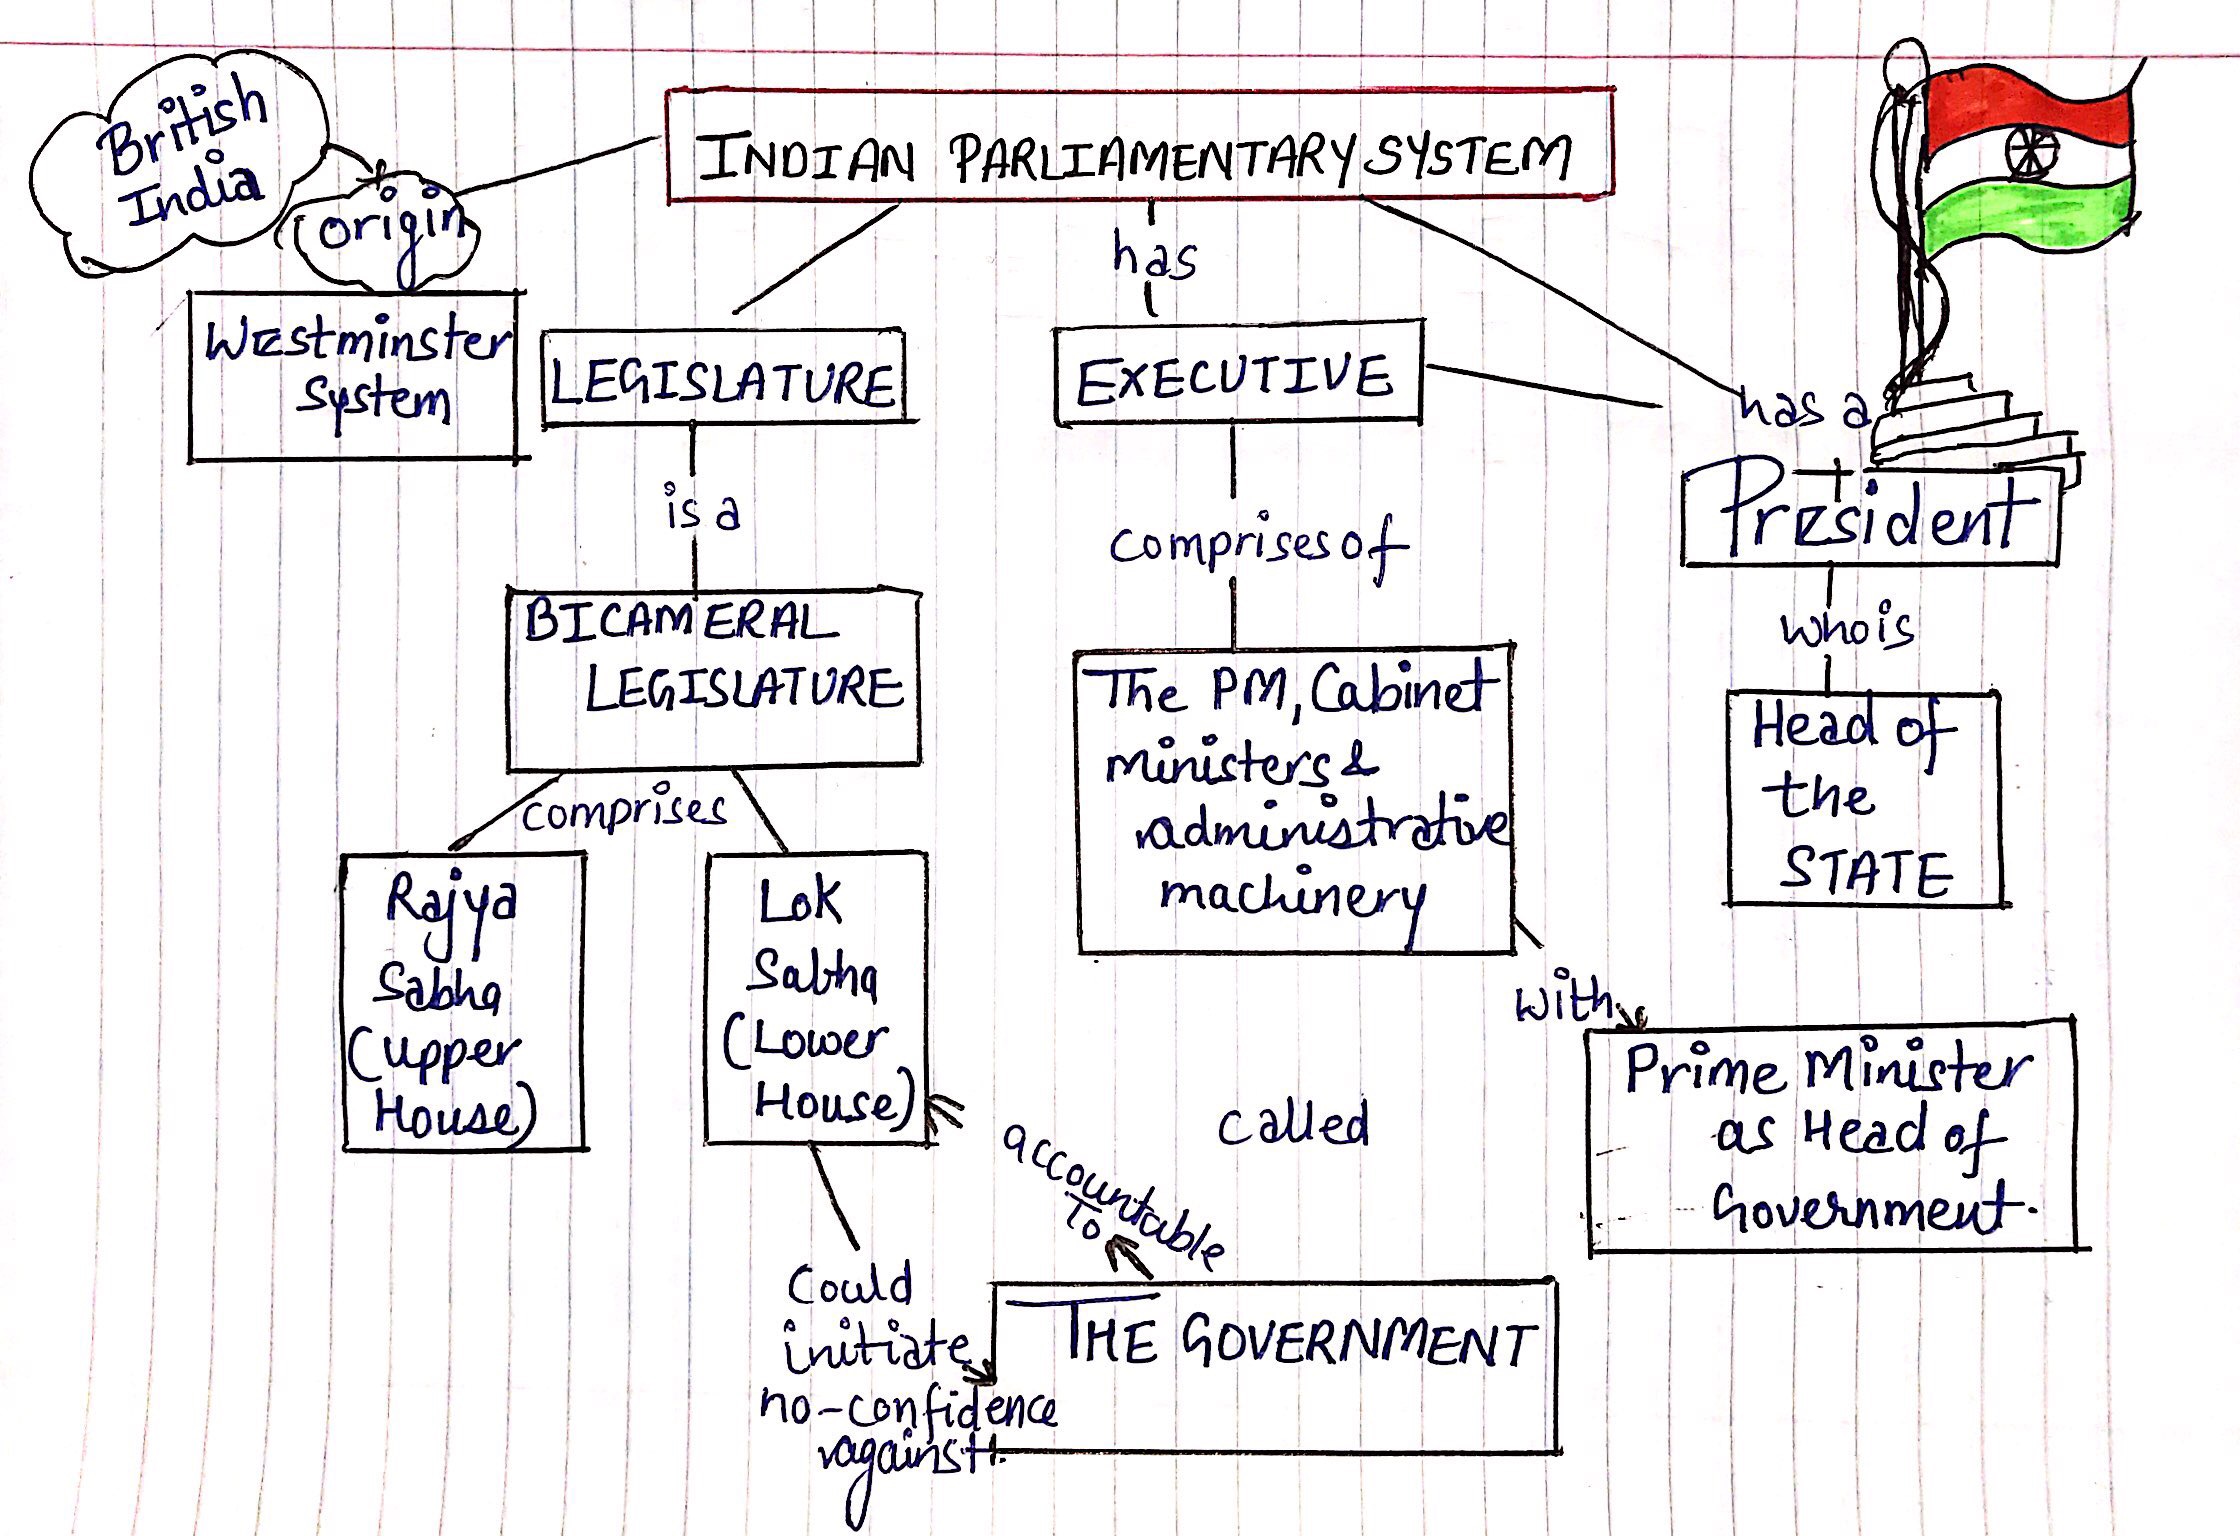 British
India
origin
INDIAN PARLIAMENTARY SYSTEM
has
Westminster
System
LEGISLATURE
EXECUTIVE
has a
President
is a
comprises of
who is
BICAMERAL
LEGISLATURE
The PM, Cabinet
ministers &
administrative
machinery
Head of
the
STATE
comprises
Rajya
Sabha
(upper
House)
Lok
Sabha
(Lower
House)
with
Prime Minister
as Head of
Government.
called
accountable
To
Could
initiate
no-confidence
against
THE GOVERNMENT